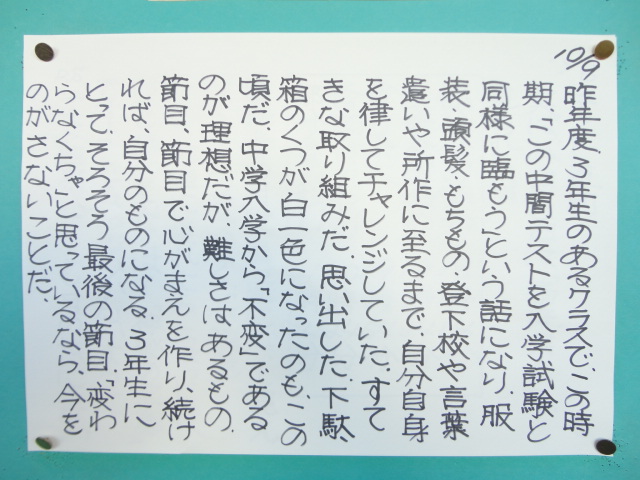 10/9
昨年度3年生のあるクラスで、この時
期、「この中間テストを入学試験と
同様に臨もう」という話になり、服
装・頭髪・もちもの・登下校や言葉
遣いや所作に至るまで、自分自身
を律してチャレンジしていた。すて
きな取り組みだ。思い出した。下駄
箱のくつが白一色になったのも、この
頃だ。中学入学から、「不変」である
のが理想だが、難しさはあるもの、
節目、節目で心がまえを作り、続け
れば、自分のものになる。3年生に
とって、そろそろ最後の節目。「変わ
らなくちゃ」と思っているなら、今を
のがさないことだ。